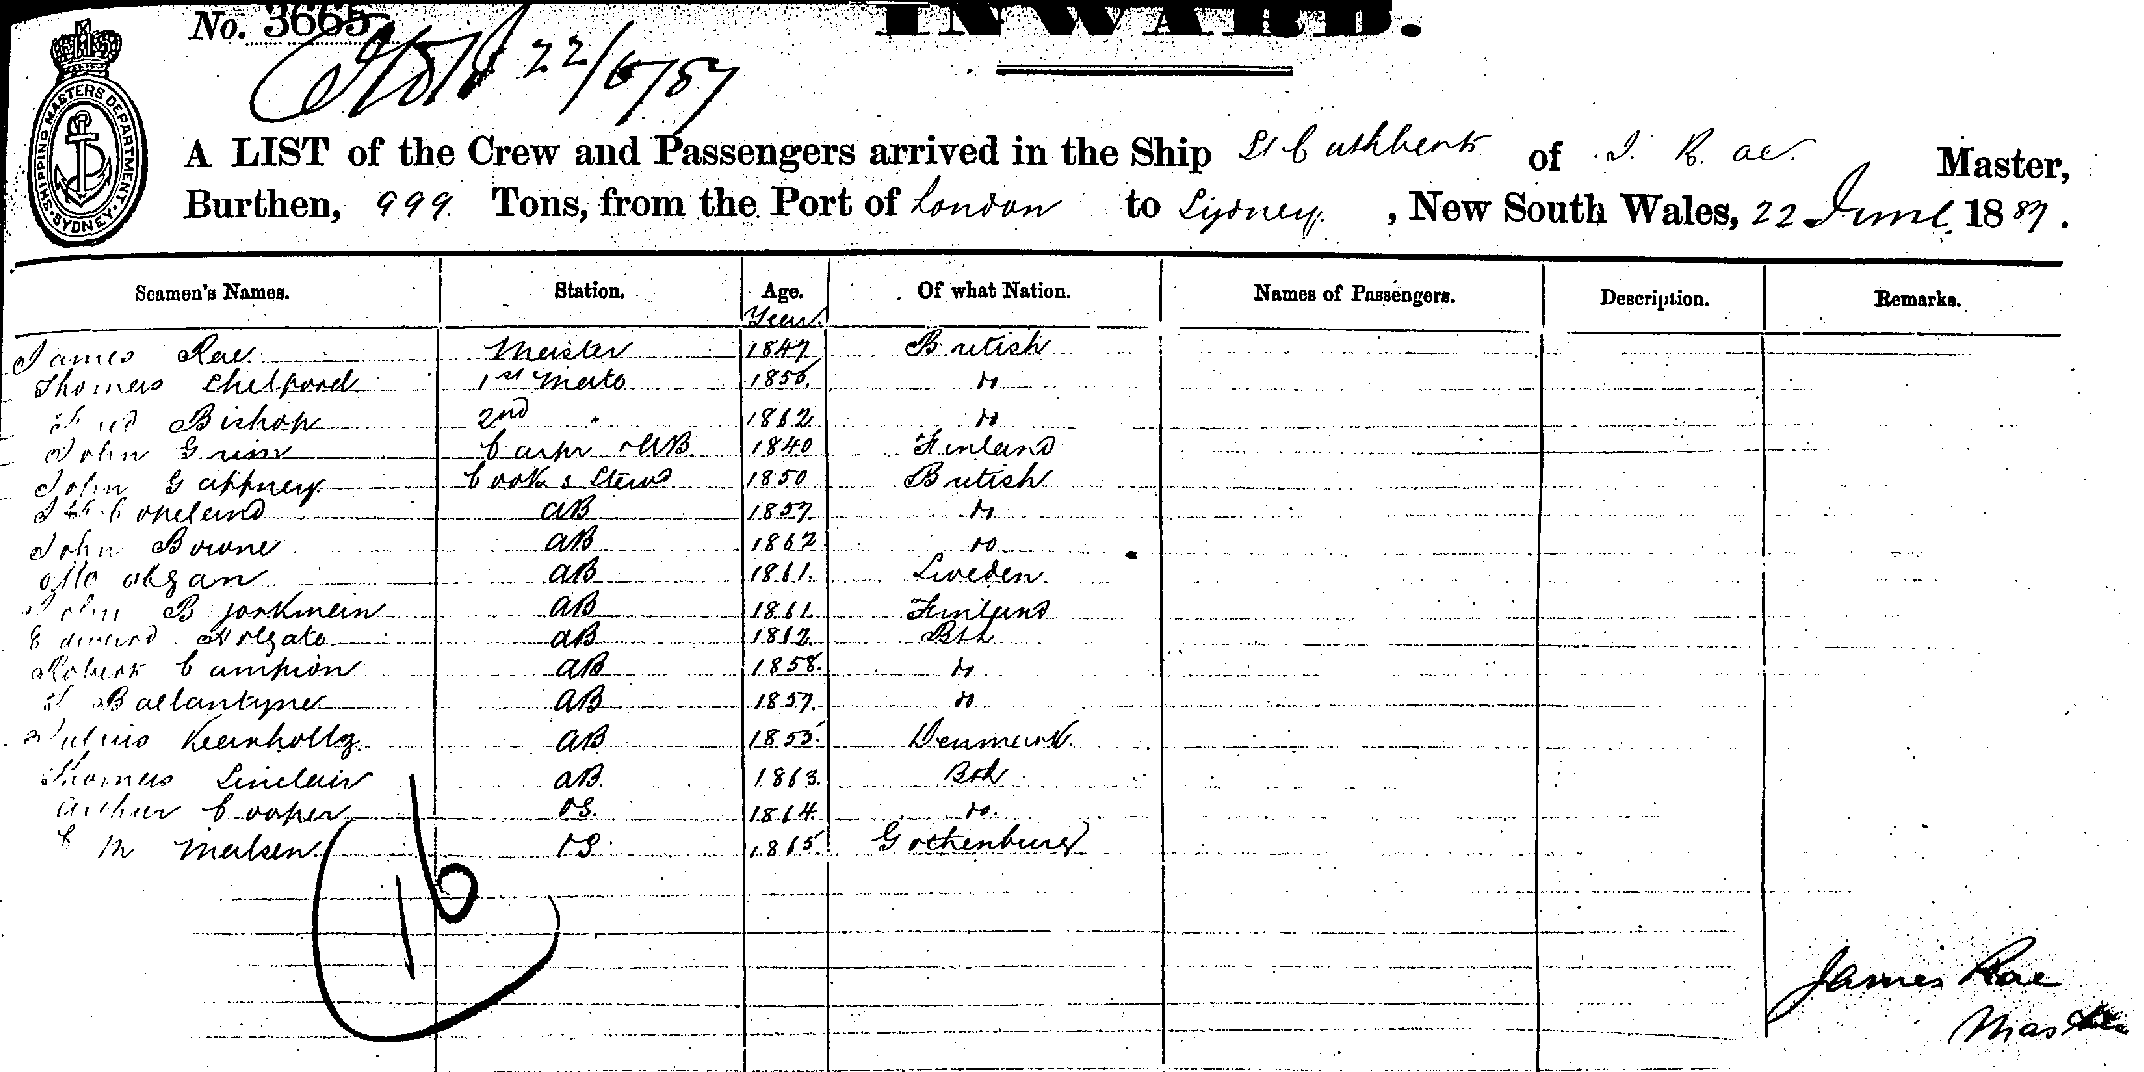 No. 3665
INWARD.
22/6/87
SHIPPING MASTERS DEPARTMENT. SYDNEY.
A LIST of the Crew and Passengers arrived in the Ship St Cuthbert of J. Rae. Master,
Burthen, 999. Tons, from the Port of London to Sydney. , New South Wales, 22 June 1887.
Seamen's Names. Station. Age. Of what Nation. Names of Passengers. Description. Remarks.
Year.
James Rae Master 1847 British
Thomas Chelpord 1st Mate 1856 do
Bishop 2nd " 1862 do
John Grim Carpr & AB 1840 Finland
John Gaffney Cook & Stewd 1850 British
Copeland AB 1857 do
John Bowne AB 1862 do
Otto AB 1861. Sweden.
John Bjorkman AB 1861 Finland
Edward Holgate AB 1862 Bth
Robert Campion AB 1858. do
Ballantyne AB 1857. do
Julius AB 1855 Denmark.
Thomas Sinclair AB. 1863. Bth
Arthur Cooper OS. 1864. do.
C M Neilsen OS. 1865 Gothenburg
16
James Rae
Master